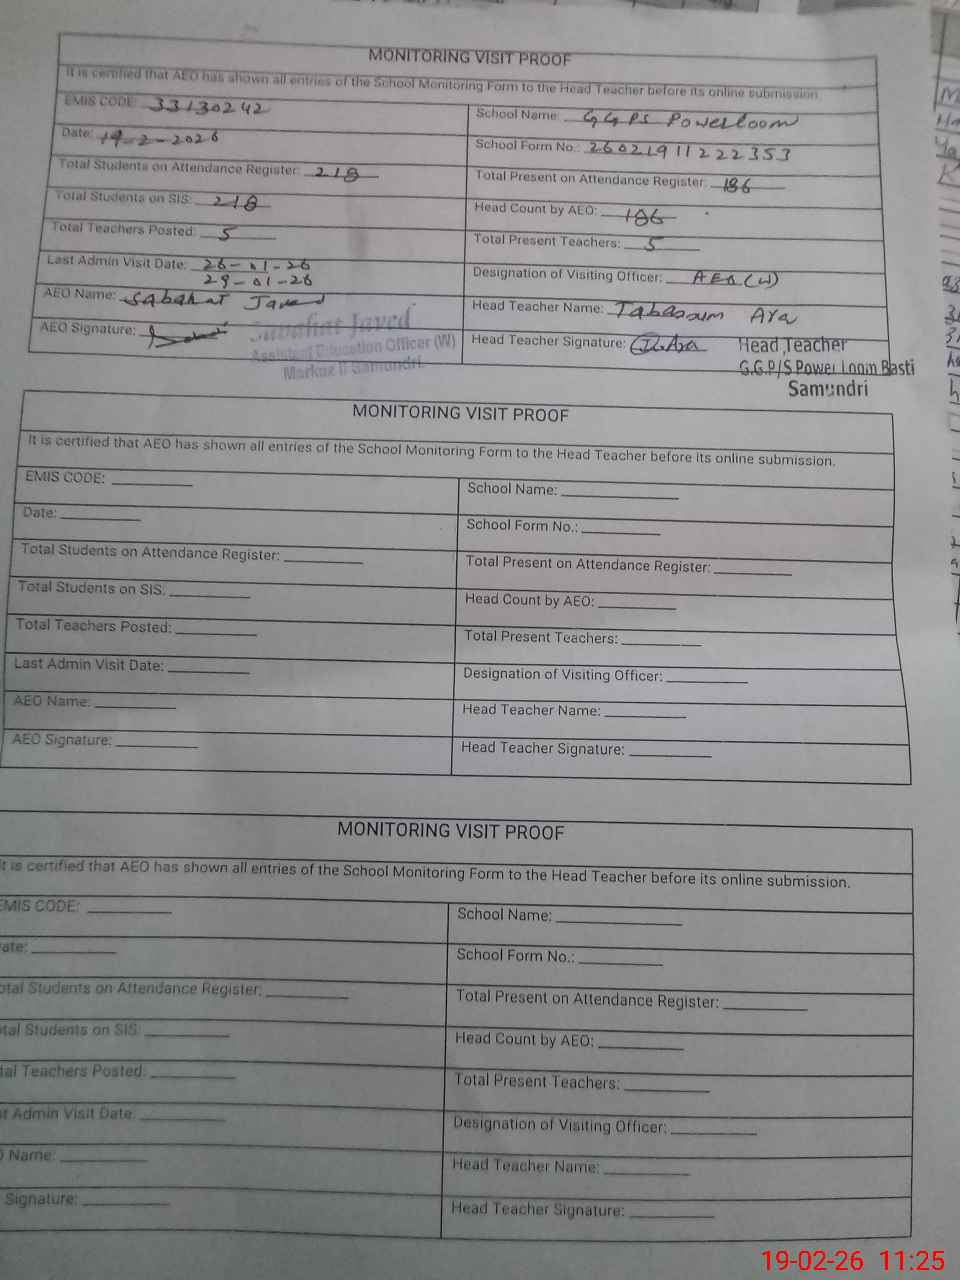 MONITORING VISIT PROOF
It is certified that AEO has shown all entries of the School Monitoring Form to the Head Teacher before its online submission.
EMIS CODE: 33130242
School Name: GGPS Powerloom
Date: 19-2-2026
School Form No.: 26021911222353
Total Students on Attendance Register: 218
Total Present on Attendance Register: 186
Total Students on SIS: 218
Head Count by AEO: 186
Total Teachers Posted: 5
Total Present Teachers: 5
Last Admin Visit Date: 26-01-26
29-01-26
Designation of Visiting Officer: AEO (W)
AEO Name: Sabahat Javed
Head Teacher Name: Tabassum Ara
AEO Signature:
Sabahat Javed
Assistant Education Officer (W)
Markaz II Samundri.
Head Teacher Signature:
Head Teacher
G.G.P/S Power Loom Basti
Samundri
MONITORING VISIT PROOF
It is certified that AEO has shown all entries of the School Monitoring Form to the Head Teacher before its online submission.
EMIS CODE:
School Name:
Date:
School Form No.:
Total Students on Attendance Register:
Total Present on Attendance Register:
Total Students on SIS:
Head Count by AEO:
Total Teachers Posted:
Total Present Teachers:
Last Admin Visit Date:
Designation of Visiting Officer:
AEO Name:
Head Teacher Name:
AEO Signature:
Head Teacher Signature:
MONITORING VISIT PROOF
It is certified that AEO has shown all entries of the School Monitoring Form to the Head Teacher before its online submission.
EMIS CODE:
School Name:
ate:
School Form No.:
otal Students on Attendance Register:
Total Present on Attendance Register:
tal Students on SIS:
Head Count by AEO:
tal Teachers Posted:
Total Present Teachers:
t Admin Visit Date:
Designation of Visiting Officer:
O Name:
Head Teacher Name:
Signature:
Head Teacher Signature:
19-02-26 11:25